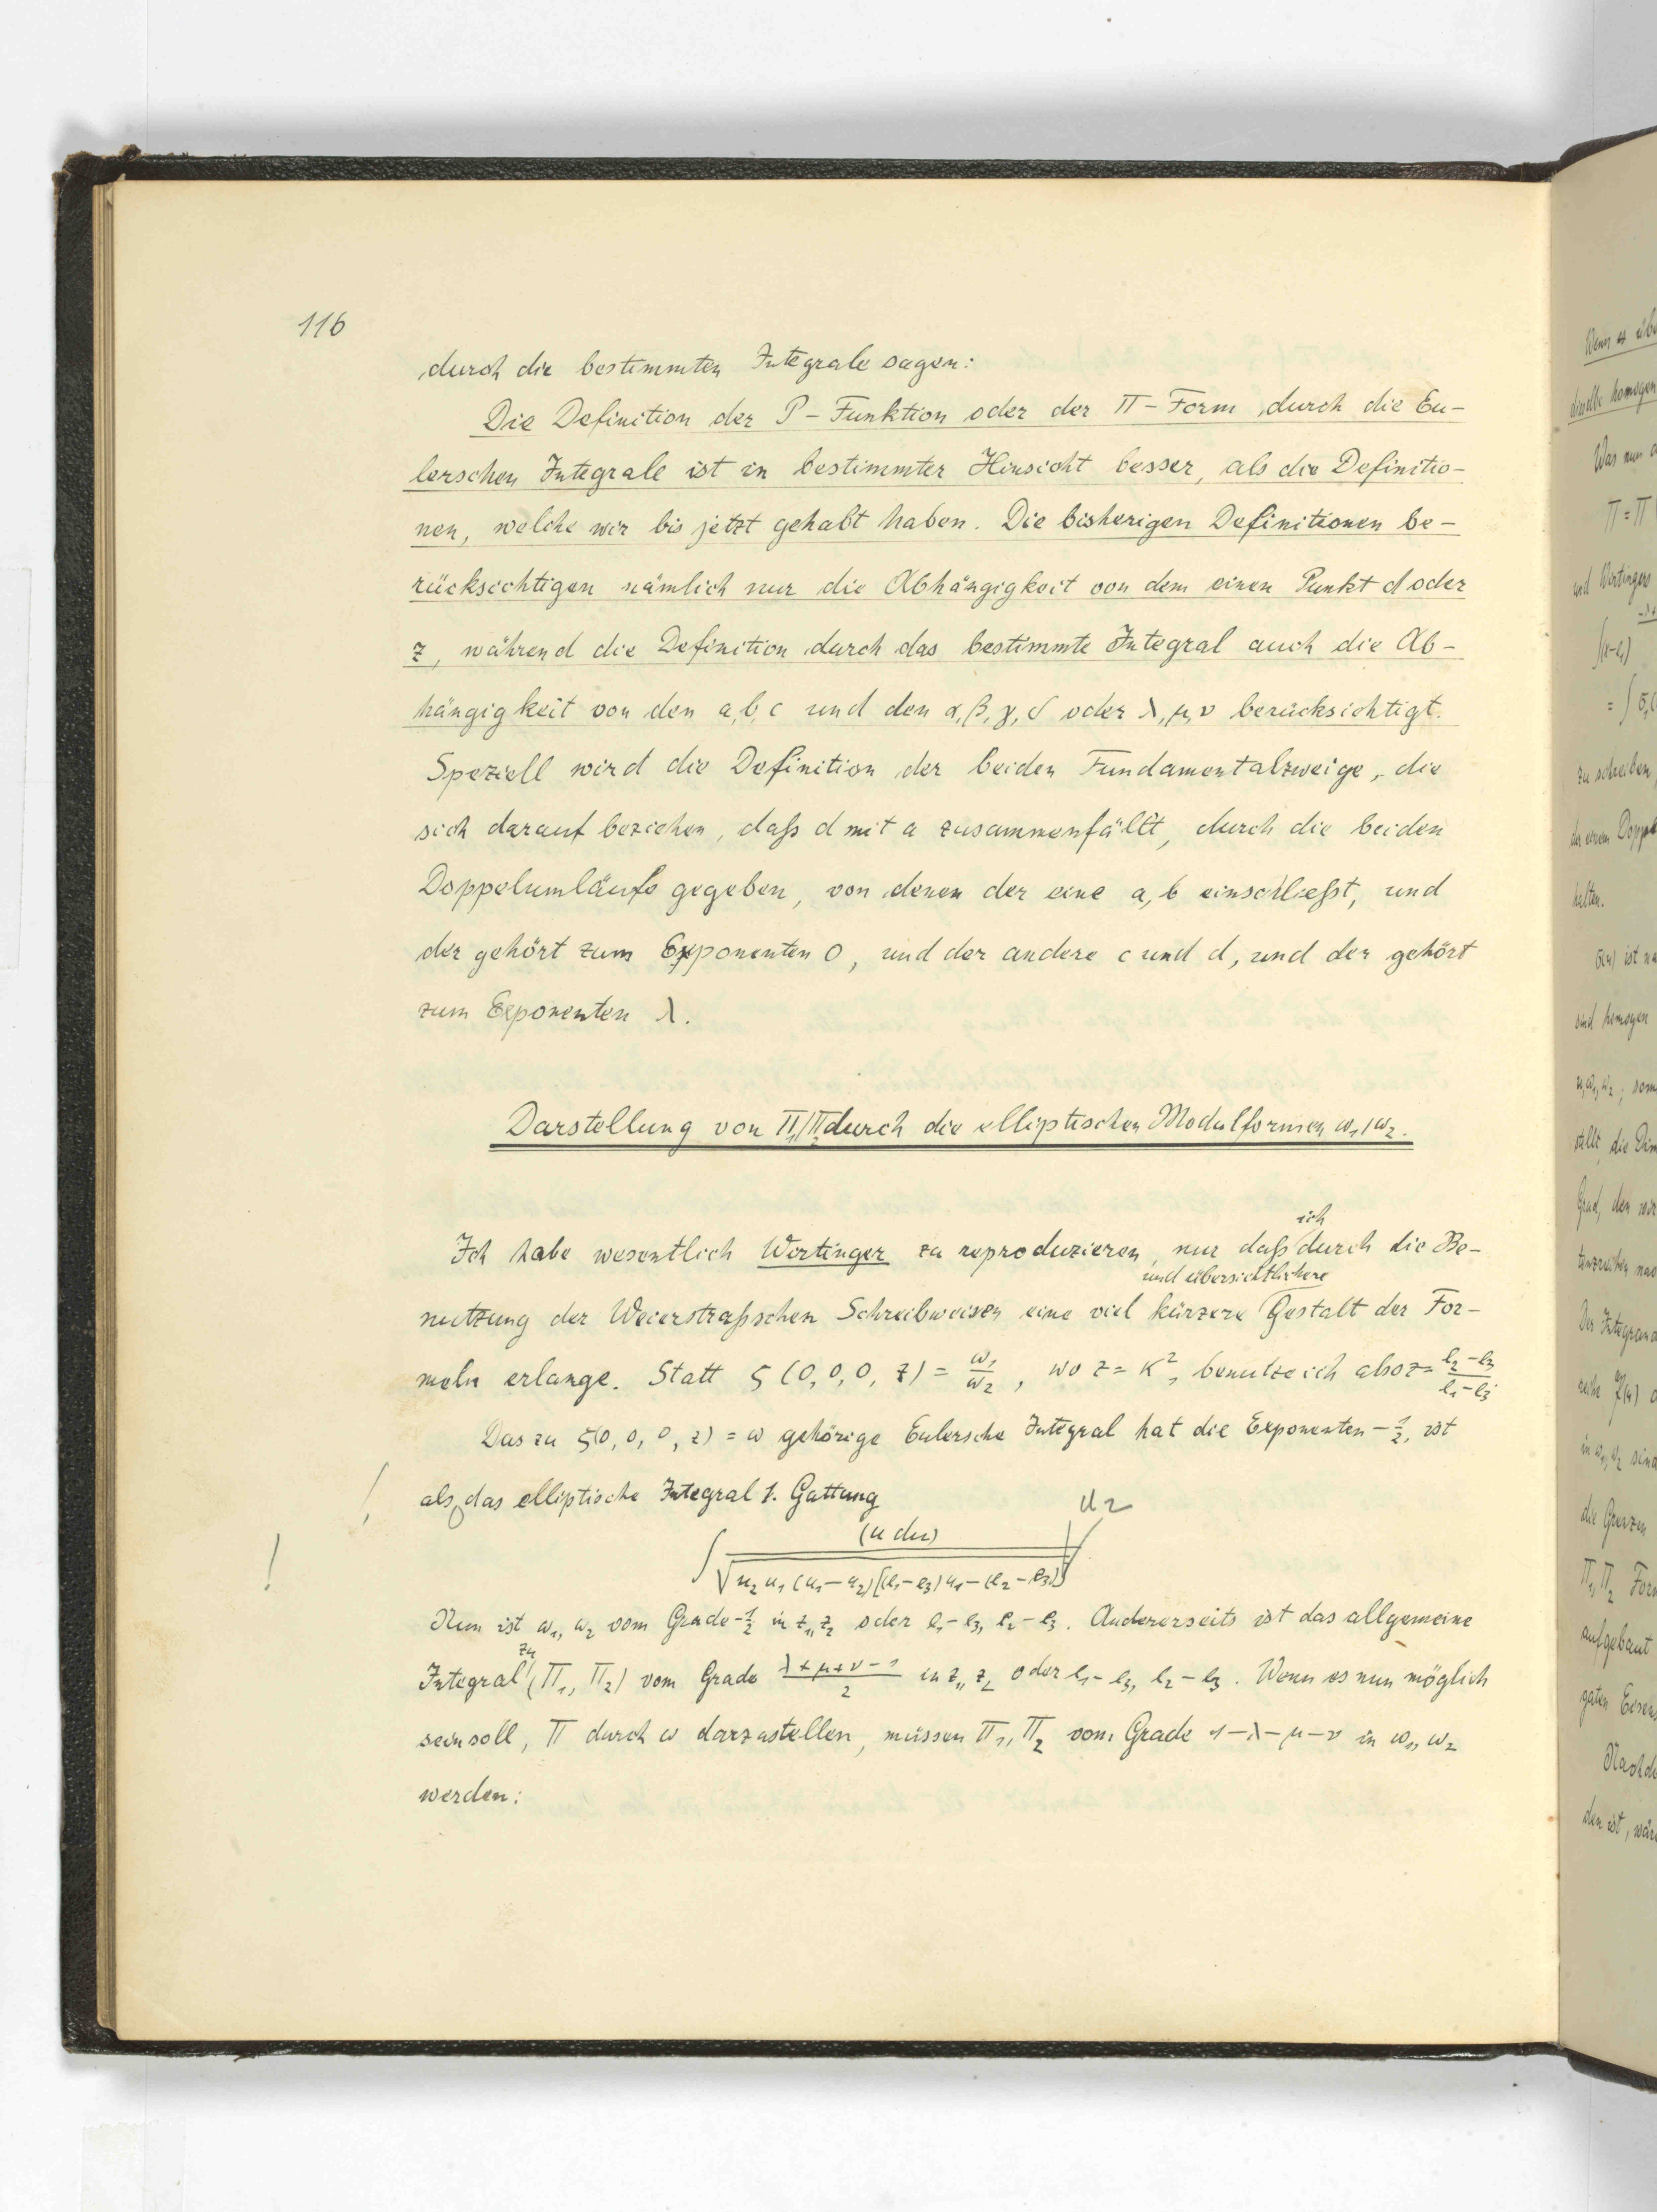 116
durch die bestimmten Integrale sagen:
Die Definition der P-Funktion oder der Π-Form durch die Eu-
lerschen Integrale ist in bestimmter Hinsicht besser, als die Definitio-
nen, welche wir bis jetzt gehabt haben. Die bisherigen Definitionen be-
rücksichtigen nämlich nur die Abhängigkeit von dem einen Punkt d oder
z, während die Definition durch das bestimmte Integral auch die Ab-
hängigkeit von den a, b, c und den α, β, γ, δ oder λ, μ, ν berücksichtigt.
Speziell wird die Definition der beiden Fundamentalzweige, die
sich darauf beziehen, daß d mit a zusammenfällt, durch die beiden
Doppelumläufe gegeben, von denen der eine a, b einschließt, und
der gehört zum Exponenten 0, und der andere c und d, und der gehört
zum Exponenten λ.
Darstellung von Π₁/Π₂ durch die elliptischen Modulformen ω₁/ω₂.
Ich habe wesentlich Wirtinger zu reproduzieren, nur daß ich durch die Be-
nutzung der Weierstraßschen Schreibweisen eine viel kürzere und übersichtlichere Gestalt der For-
meln erlange. Statt ζ(0, 0, 0, z) = ω₁/ω₂, wo z = K², benutze ich also z = (e₂-e₃)/(e₁-e₃)
Das zu ζ(0, 0, 0, z) = ω gehörige Eulersche Integral hat die Exponenten -1/2, ist
! als das elliptische Integral 1. Gattung
! ∫ (u du) / √(u₂ u₁ (u₁-u₂) [(e₁-e₃) u₁-(e₂-e₃)]) u₂
Nun ist ω₁, ω₂ vom Grade -1/2 in z₁, z₂ oder e₁-e₃, e₂-e₃. Andererseits ist das allgemeine
Integral zu (Π₁, Π₂) vom Grade (λ+μ+ν-1)/2 in z₁, z₂ oder e₁-e₃, e₂-e₃. Wenn es nun möglich
sein soll, Π durch ω darzustellen, müssen Π₁, Π₂ vom Grade 1-λ-μ-ν in ω₁, ω₂
werden: